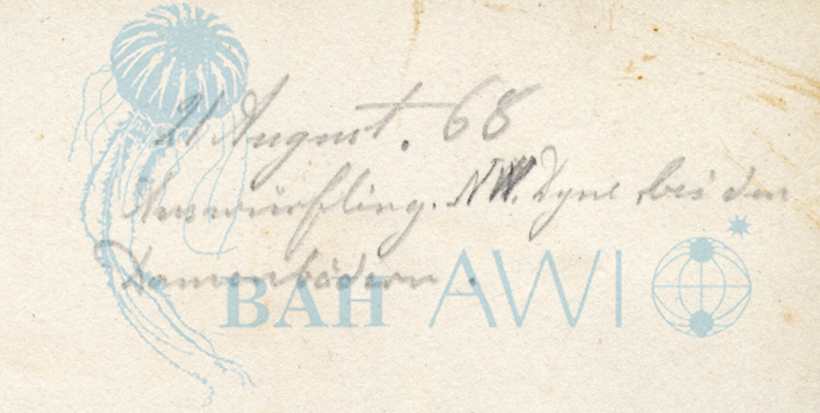 21 August. 68
Auswürfling. NW. Dyne bei den
Damenbädern.
BAH AWI